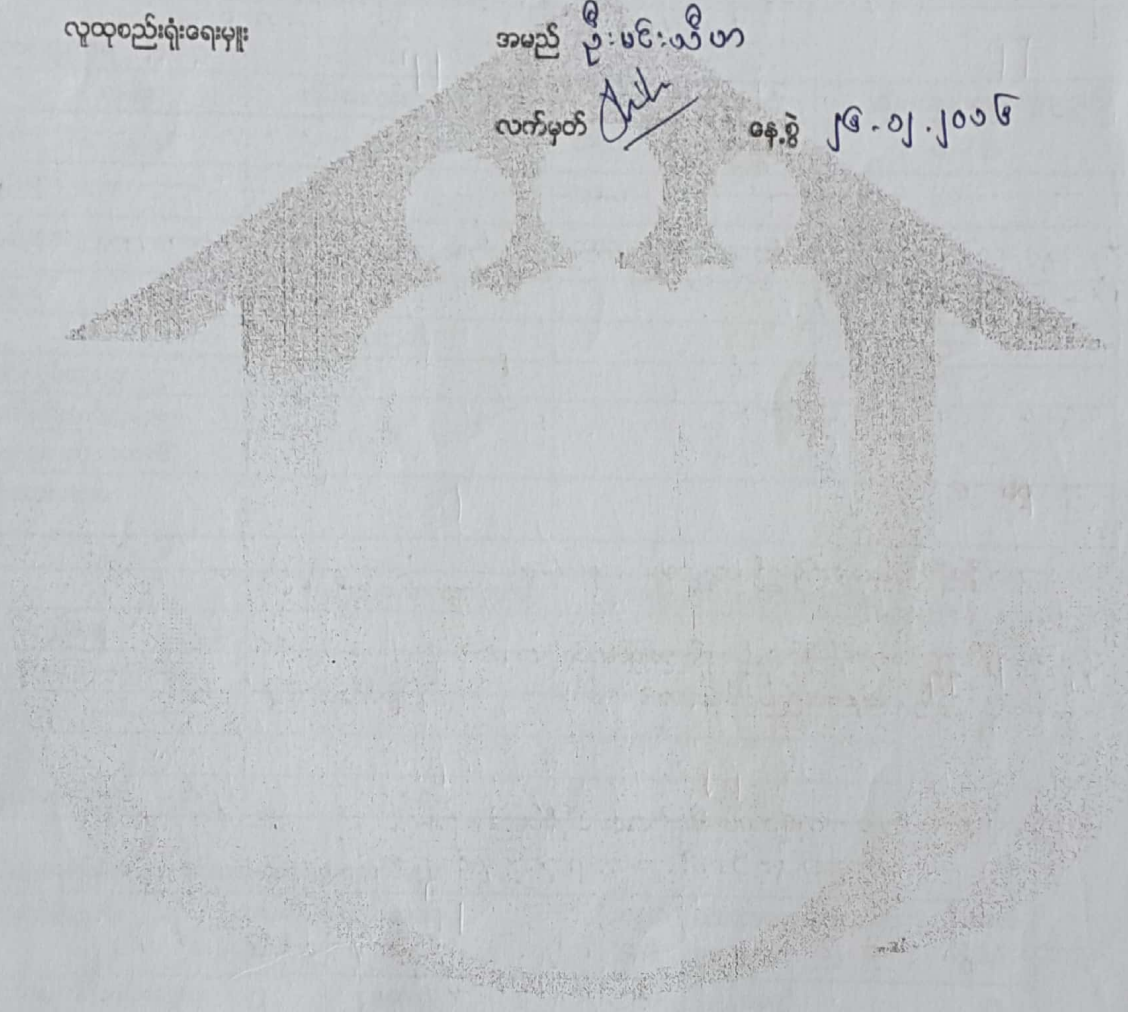 လူထုစည်းရုံးရေးမှူး အမည် ဦးမင်းသီဟ
လက်မှတ် နေ့စွဲ ၂၆.၁၂.၂၀၁၆